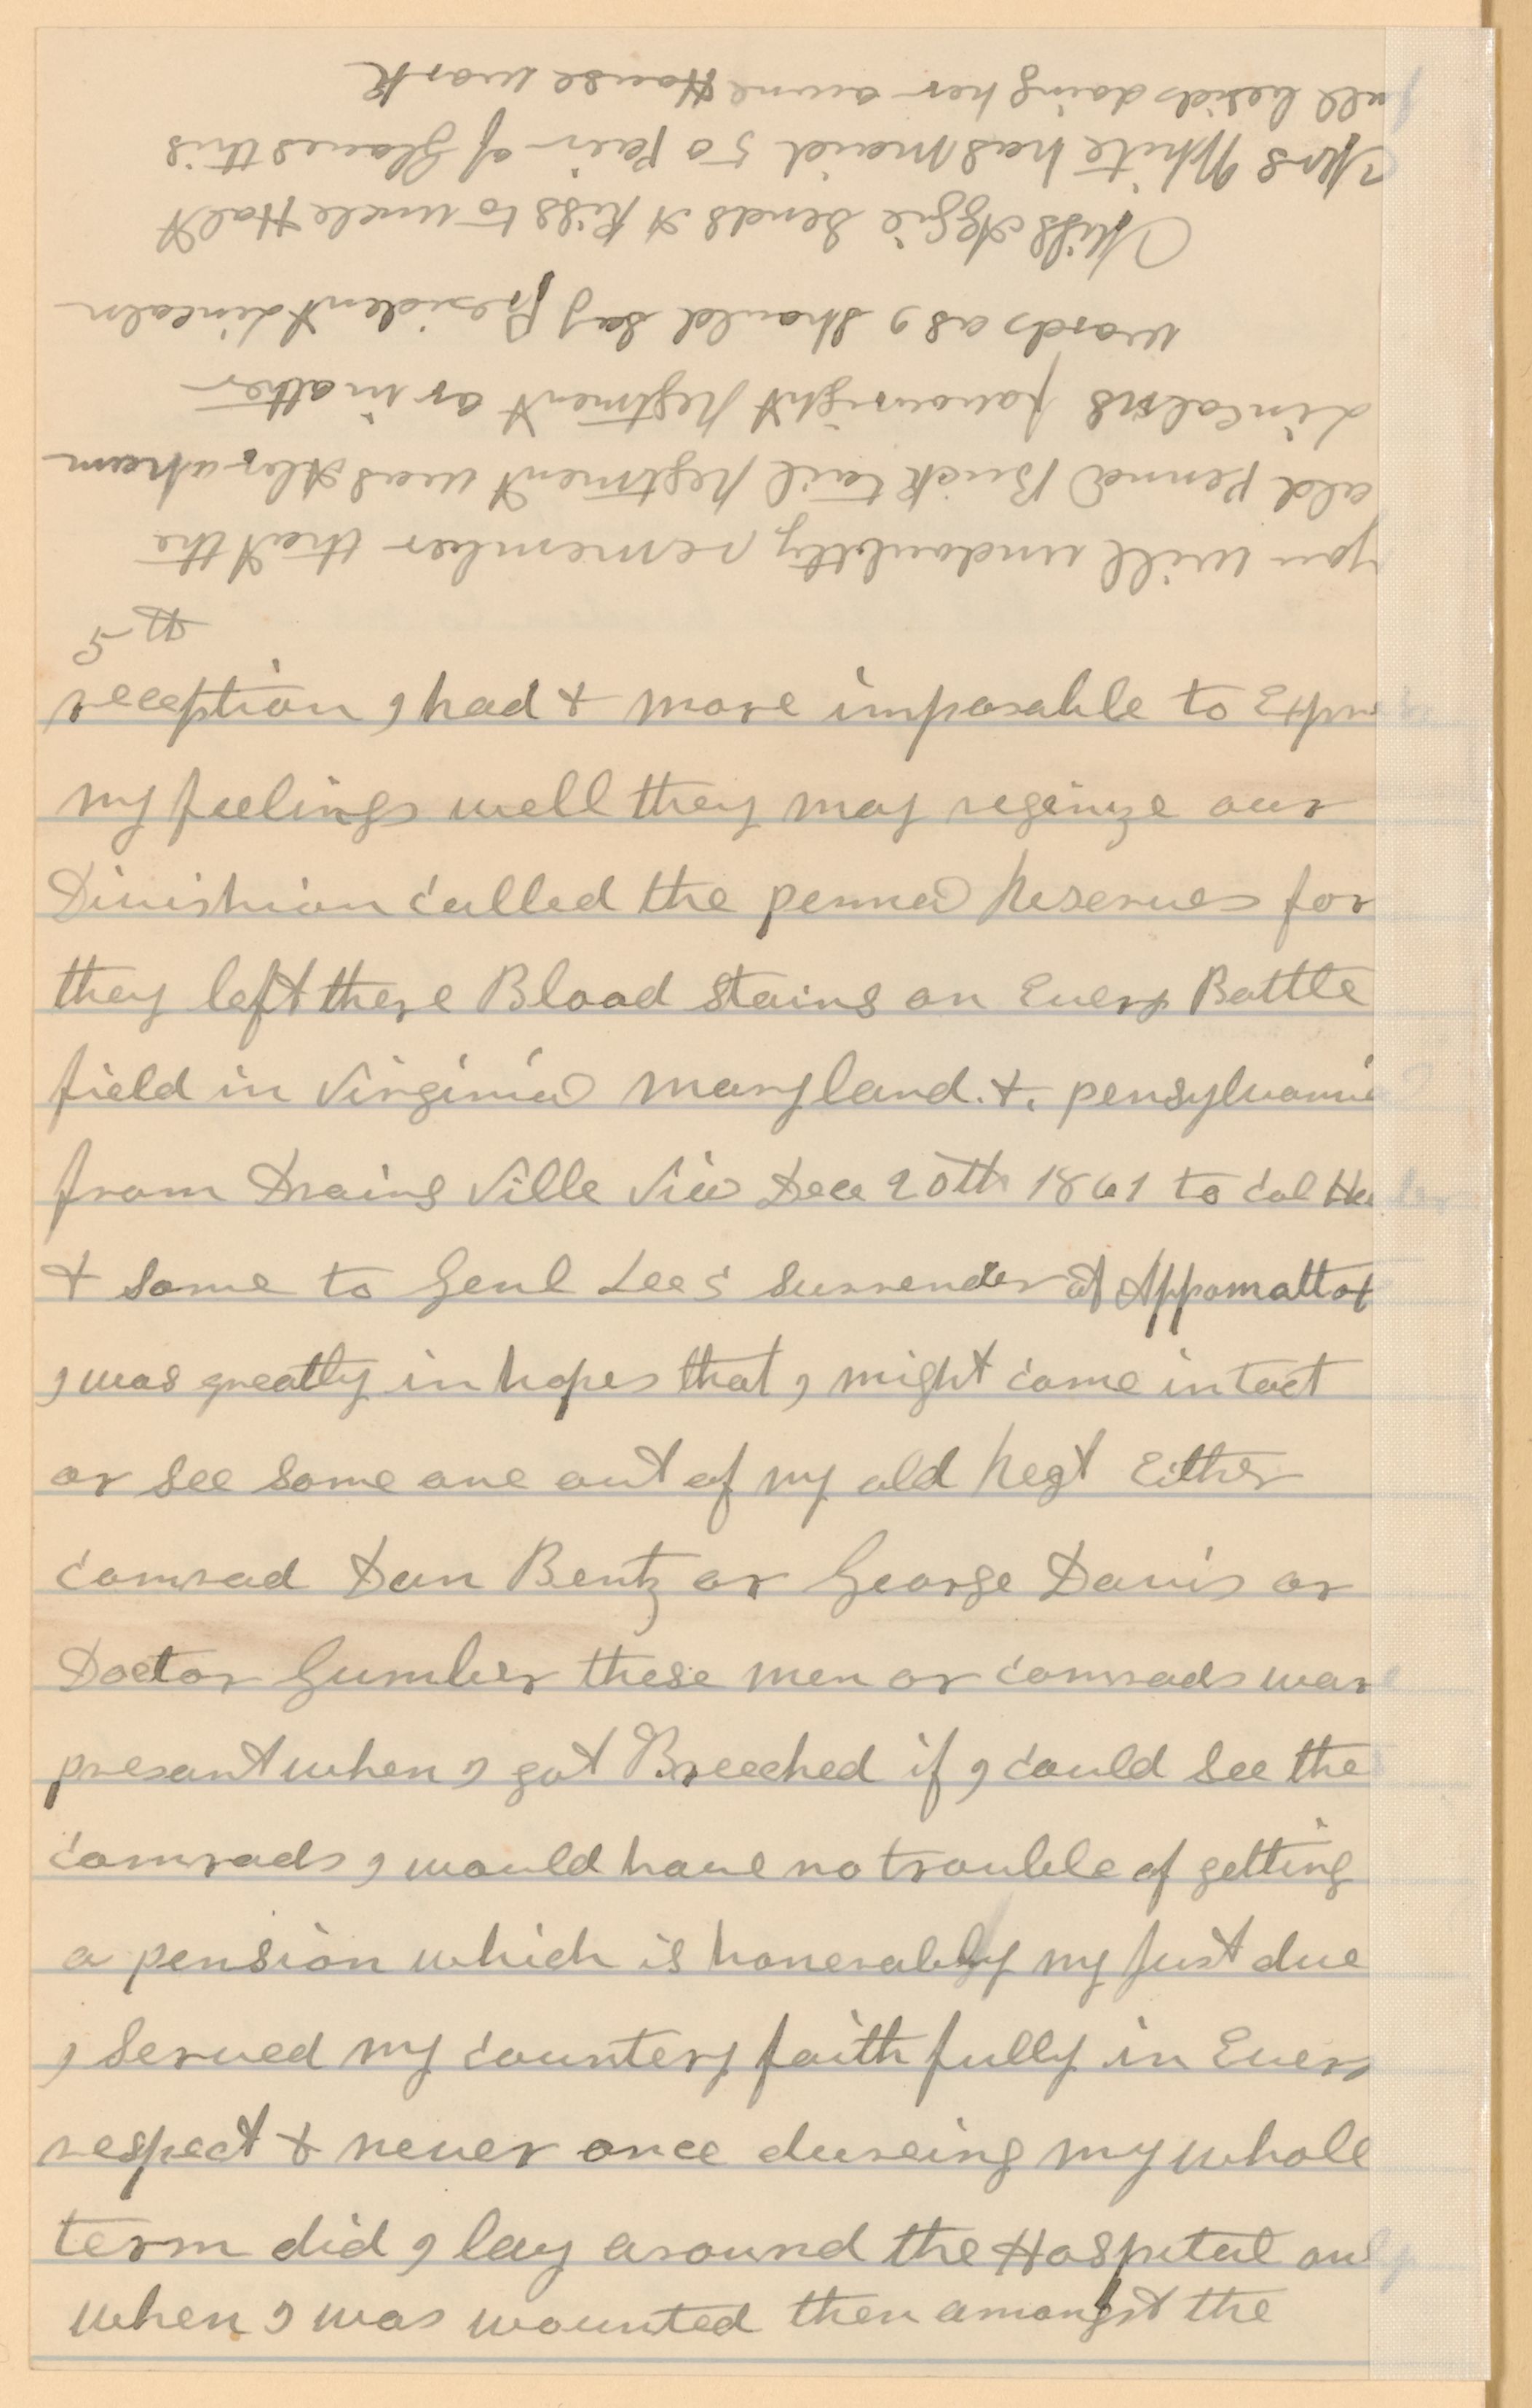 you will undoubtly remember that the
old Penna Bucktail Regtment was Abraham
Lincolns favouright Regtment or in other
words as I should say President Lincoln
Miss Aggie sends A Kiss to uncle Holt
Mrs White has maid 50 Pair of Gloves this
fall besids doing her owne House work
5th
reception I had & more imposable to Expre
my feelings well they may reginize our
Divishion called the penna Reserves for
they left there Blood stains on Every Battle
field in Virginia Maryland. &. pensylvania
from Drains Ville Via Dec 20th 1861 to Col
& some to Genl Lee's surrender at Appomattox
I was greatly in hopes that I might come in tact
or see some one out of my old Regt Either
comrad Dan Bentz or George Davis or
Doctor Gumber these men or comrads ware
presant when I got Breeched if I could see the
comrads I would have no trouble of getting
a pension which is honerably my just due
I served my countery faithfully in Every
respect & never once dureing my whole
term did I lay around the Hospital only
when I was wounted then amongst the